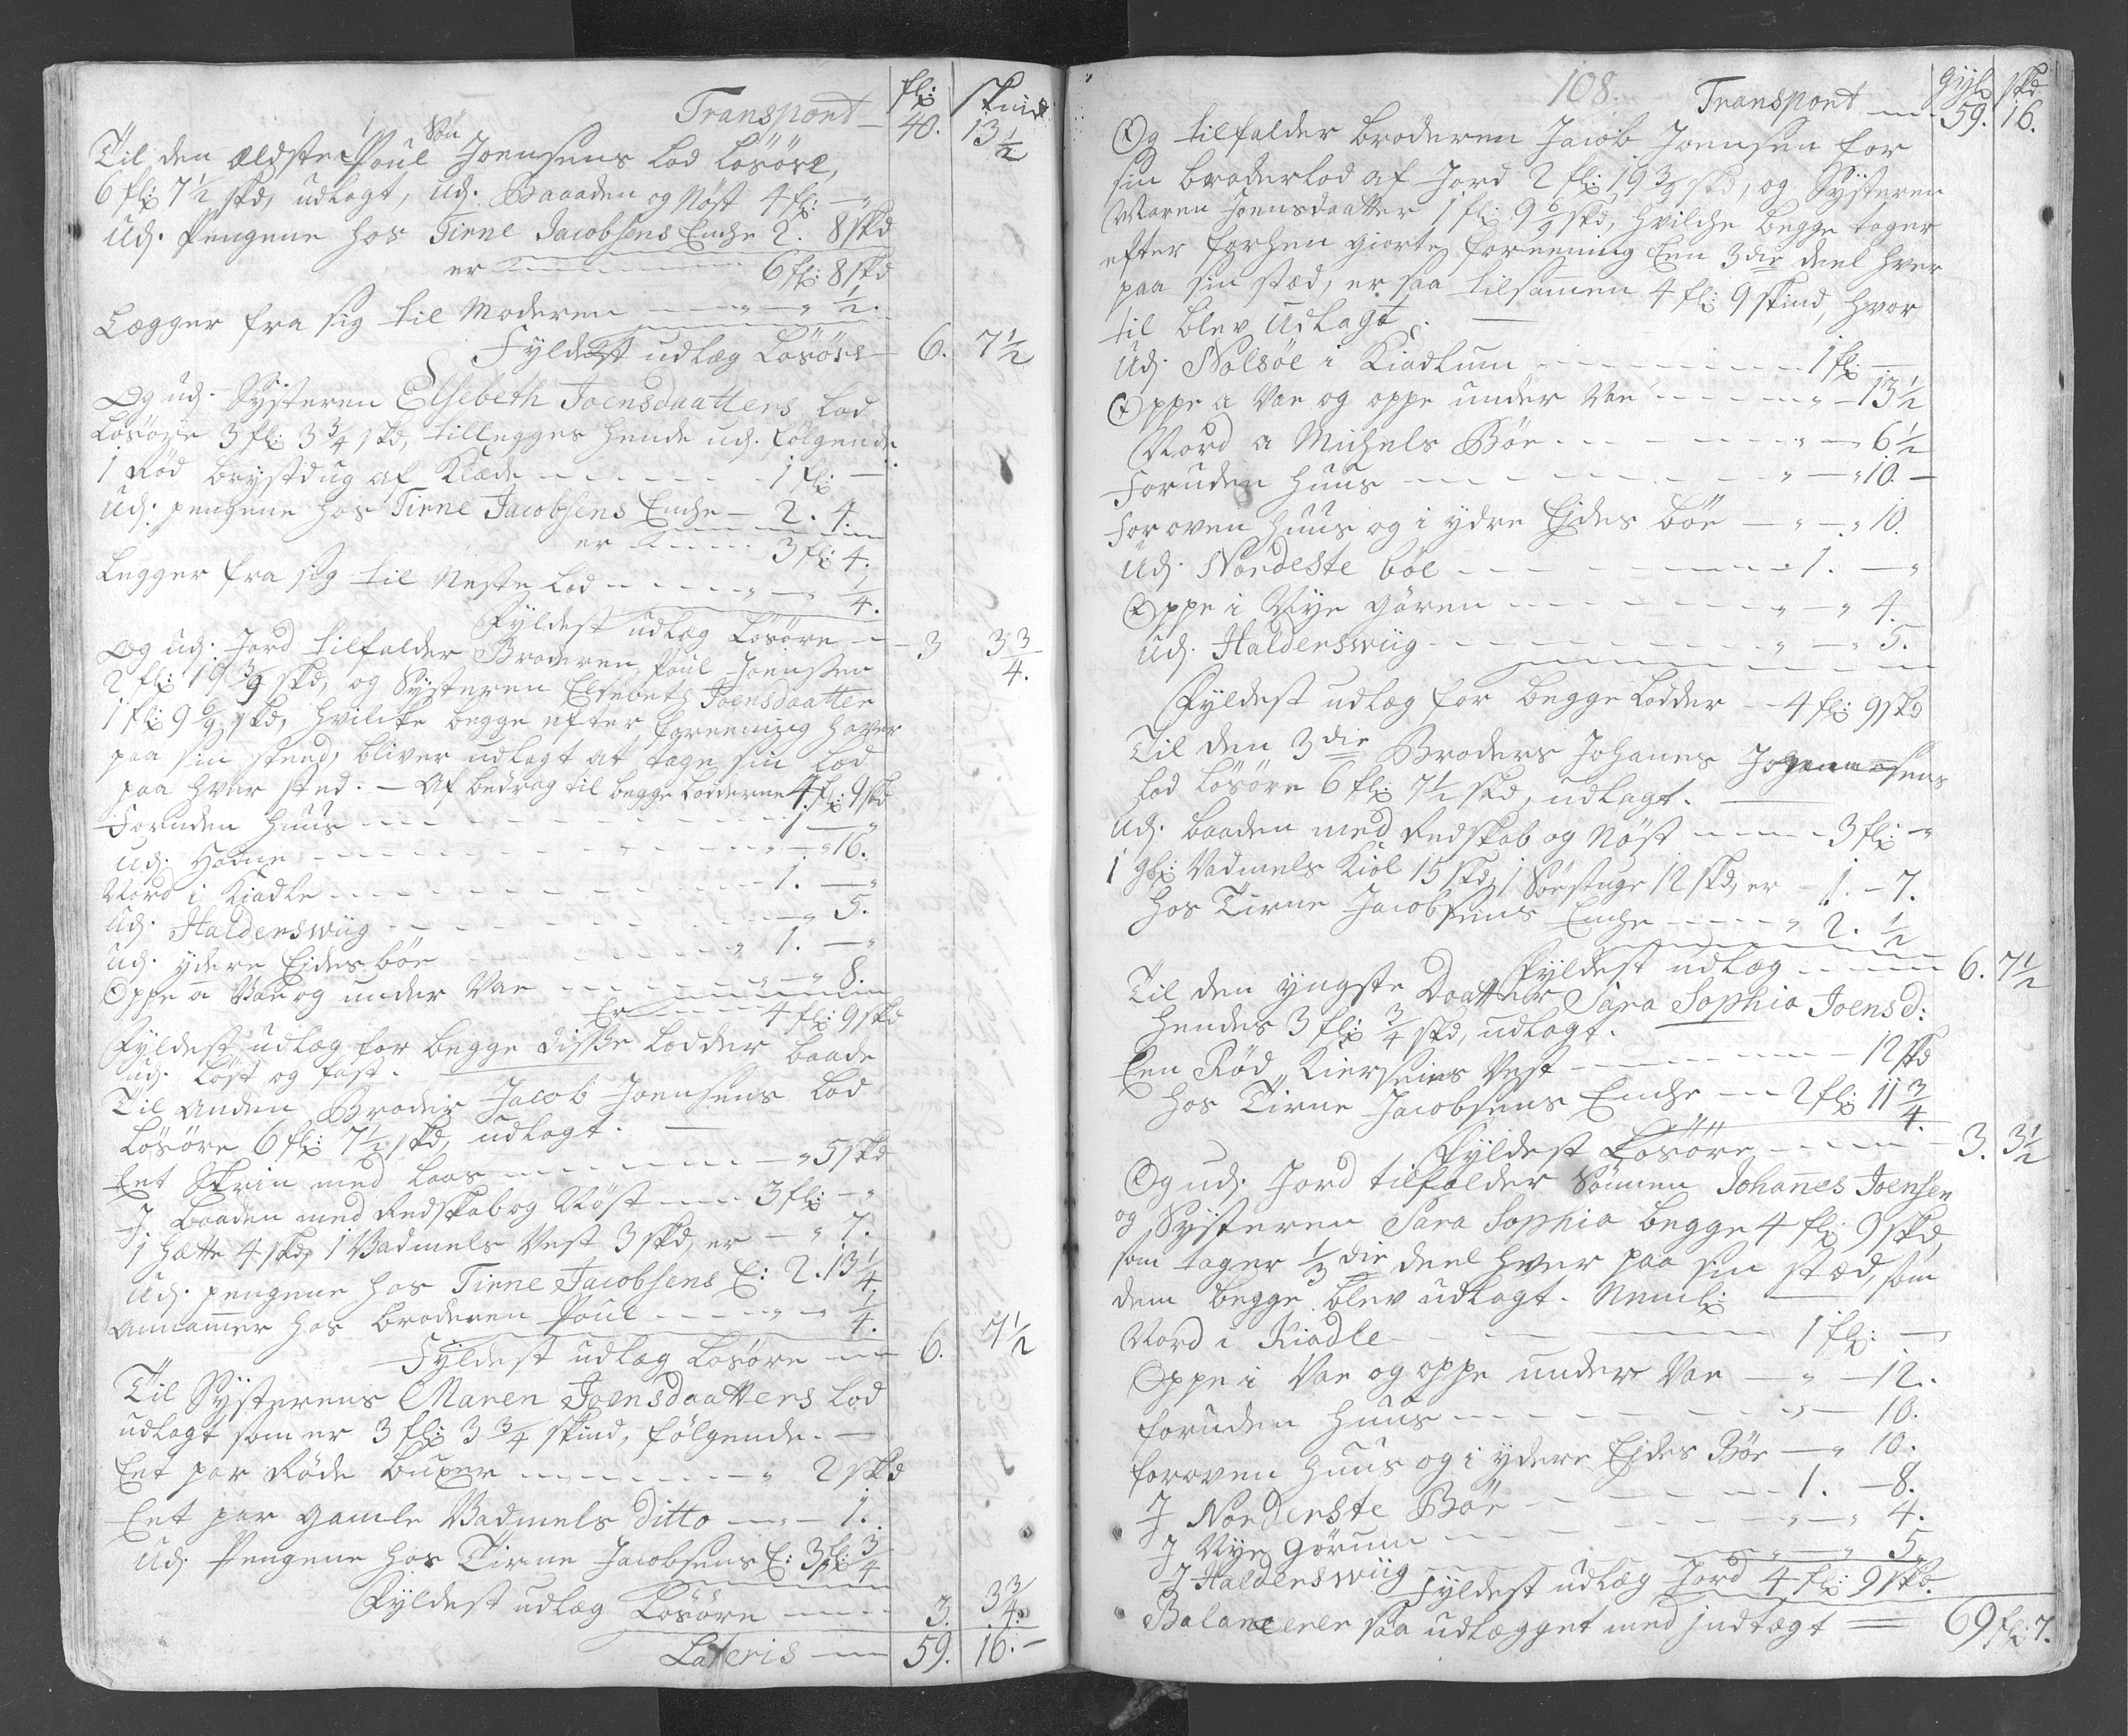 fl: skind
Transport — 40. 13½
Til den ældste Søn Poul Joensens Lod Løsöre,
6 fl: 7½ skd, udlagt, udj. Baaaden og Nöst 4 fl: — "
Udj. Pengene hos Tirne Jacobsens Enche 2. 8 skd
er 6 fl: 8 skd
Lægger fra sig til Moderen — " — " ½.
Fyldest udlæg Løsöre — 6. 7½
Og udj. Systeren Elsebeth Joensdaatters Lod
Løsöre 3 fl: 3¾ skd, tillegges hende udj. følgende
1 Rød brystdug af Klæde 1 fl: —
Udj. pengene hos Tirne Jacobsens Enche — 2. 4.
er 3 fl: 4.
Legger fra sig til Neste Lod — " — " ¼.
Fyldest udlæg Løsöre — 3 3¾.
Og udj. Jord tilfalder Broderen Poul Joensen
2 fl: 19 3/9 skd, og Systeren Elsebeth Joensdaatter
1 fl: 9 6/9 skd, hvilcke begge efter foreening haver
paa sin steed, bliver udlagt at tage sin Lod
paa hver sted. — Af bedrag til begge Lodderne 4 fl: 9 skd
Foruden Huus 1. — "
Udj. Hadne " — " 16.
Nord i Kiadle 1. — "
Udj. Haldenswiig — " 5.
Udj. ydere Eidesböe " 1. — "
Oppe a Vae og under Vae " — " 8.
Er 4 fl: 9 skd
Fyldest udlæg for begge disse Lodder baade
udj. Löst og fast.
Til Anden Broder Jacob Joensens Lod
Løsöre 6 fl: 7½ skd, udlagt. —
Eet Skrin med Laas — " 5 skd
J. Baaden med Redskab og Nöst — 3 fl: — "
1 Hatte 4 skd, 1 Vadmels Vest 3 skd, er — " 7.
Udj. pengene hos Tirne Jacobsens E: 2. 13¼
Annammer hos broderen Poul — " — " ¼.
Fyldest udlæg Løsöre — 6. 7½
Til Systerens Maren Joensdaatters Lod
udlagt som er 3 fl: 3¾ skind, følgende. —
Eet par Røde buxer — " 2 skd
Eet par gamle Vadmels ditto — " — 1.
Udj. Pengene hos Tirne Jacobsens E: 3 fl: ¾
Fyldest udlæg Løsöre — 3. 3¾.
Lateris — 59. 16. —
108. Gyl: skd
Transport — 59. 16.
Og tilfalder broderen Jacob Joensen for
sin broderlod af Jord 2 fl: 19 3/9 skd, og Systeren
Maren Joensdaatter 1 fl: 9 6/9 skd, hvilche begge tager
efter forhen giorte foreening Een 3die deel hver
paa sin sted, er saa tilsamen 4 fl: 9 skind, hvor
til blev udlagt. —
Udj. Nolsöe i Kiadlum 1 fl: —
Oppe a Vae og oppe under Vae " — 13½
Nord a Michels Böe " — 6½
Foruden Huus " — " 10. —
For oven Huus og i ydre Ejdes böe — " — " 10.
Udj. Nordeste böe 1. — "
Oppe i Nye gören " — " 4.
Udj. Haldenswiig " — " 5.
Fyldest udlæg for begge Lodder — 4 fl: 9 skd
Til den 3die Broders Johanes Joensens
Lod Løsöre 6 fl: 7½ skd, udlagt. —
Udj. baaden med Redskab og Nöst — 3 fl: — "
1 gl: Vadmels Kiol 15 skd, 1 Söestuge 12 skd, er — 1. — 7.
Hos Tirne Jacobsens Enche — " 2. ½
Fyldest udlæg — 6. 7½
Til den yngste Daatter Sara Sophia Joensd:
Hendes 3 fl: ¾ skd, udlagt.
Een Rød Kierseies Vest — 12 skd
Hos Tirne Jacobsens Enche — 2 fl: 11¾.
Fyldest Løsöre — 3. 3½
Og udj. Jord tilfalder Sönnen Johanes Joensen
og Systeren Sara Sophia begge 4 fl: 9 skd,
som tager ⅓die deel hver paa sin stæd, som
dem begge blev udlagt. Neml:
Nord i Kiadle 1 fl: — "
Oppe i Vae og oppe under Vae — " — 12.
Foruden Huus " — 10.
Foroven Huus og i ydere Ejdes Böe — " 10.
J Nordenste Böe 1. — 8.
J Nye Görum " — " 4.
J Haldenswiig " — " 5.
Fyldest udlæg Jord 4 fl: 9 skd.
Balancerer saa udlægget med Jndtægt = 69 fl: 7.